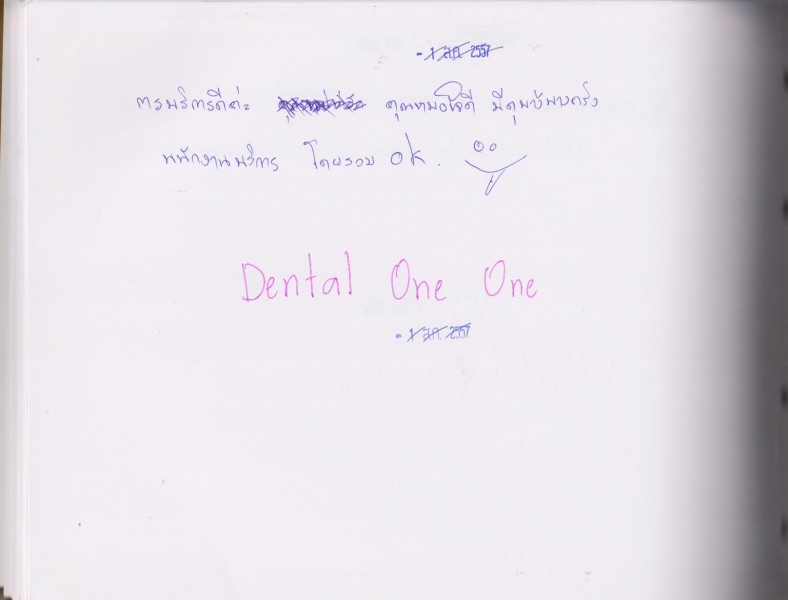 - 1 ส.ค. 2557
การบริการดีค่ะ คุณหมอใจดี มีดุบ้างบางครั้ง
พนักงานบริการ โดยรวม OK.
Dental One One
- 1 ส.ค. 2557